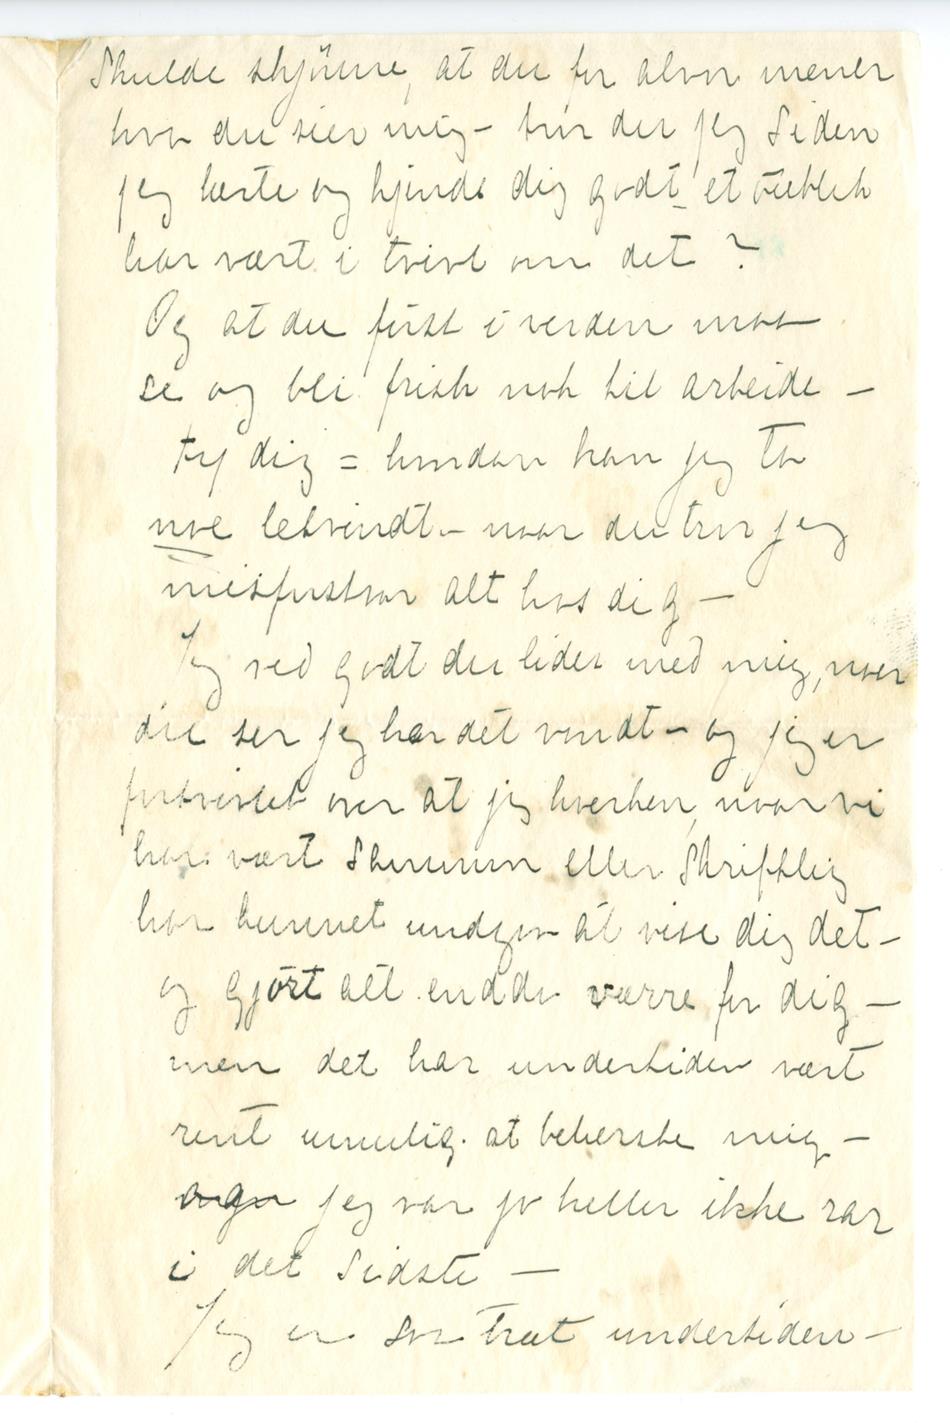 Skulde skjønne, at du for alvor mener
hva du sier mig – tror du jeg siden
jeg lærte og kjende dig godt et øieblik
har vært i tvivl om det?
Og at du först i verden maa
se og bli frisk nok til arbeide –
Ty dig = hvordan kan jeg ta
noe letvindt – naar du tror jeg
misforstaar alt hos dig –
Jeg ved godt du lider med mig, naar
du ser jeg har det vondt – og jeg er
fortvivlet over at jeg hverken, naar vi
har vært sammen eller skriftlig
har kunnet undgaa at vise dig det –
og gjört alt endda værre for dig –
men det har undertiden vært
rent umulig at beherske mig –
jeg var jo heller ikke rar
i det sidste –
Jeg er saa træt undertiden –